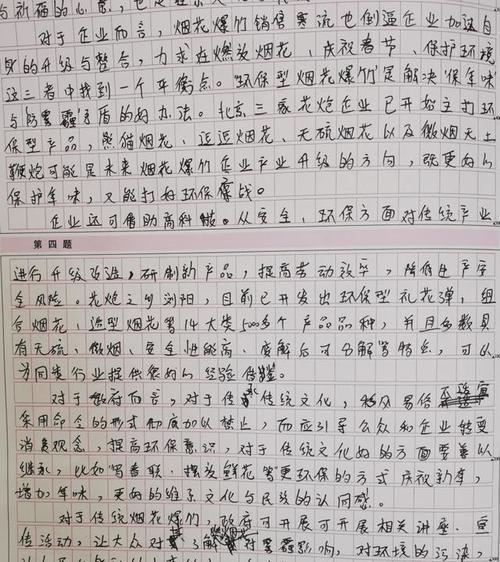 与祈福的心意,也是
对于企业而言,烟花爆竹销售寒流也倒逼企业加速自
身的升级与整合,力求在燃放烟花、庆祝春节、保护环境
这三者中找到一个平衡点。"环保型烟花爆竹"是解决"保年味
与防雾霾"矛盾的好办法。北京三家花炮企业已开始主打环
保型产品,熊猫烟花、逗逗烟花、无硫烟花以及微烟无尘
鞭炮可能是未来烟花爆竹企业产业升级的方向,既更好的
保护年味,又能打好环保战。
企业还可借助高科技。从安全、环保方面对传统产业
第四题
进行升级改造,研制新产品,提高劳动效率,降低生产安
全风险。花炮之乡浏阳,目前已开发出环保型礼花弹,组
合烟花、造型烟花等14大类1000多个产品品种,并且多数具
有无硫、微烟、安全性能高、废解后可分解等特点,可以
为同类行业提供很好的经验借鉴。
对于政府而言,对于传统文化,移风易俗不适宜
采用命令的形式彻底加以禁止,而应引导公众和企业转变
消费观念,提高环保意识,对于传统文化好的方面要善以
继承,比如写春联、摆放鲜花等更环保的方式庆祝新年,
增加年味,更好的维系文化与民族的认同感。
对于传统烟花爆竹,政府可开展可开展相关讲座、宣
传活动,让大众对其了解对雾霾影响,对环境的污染,